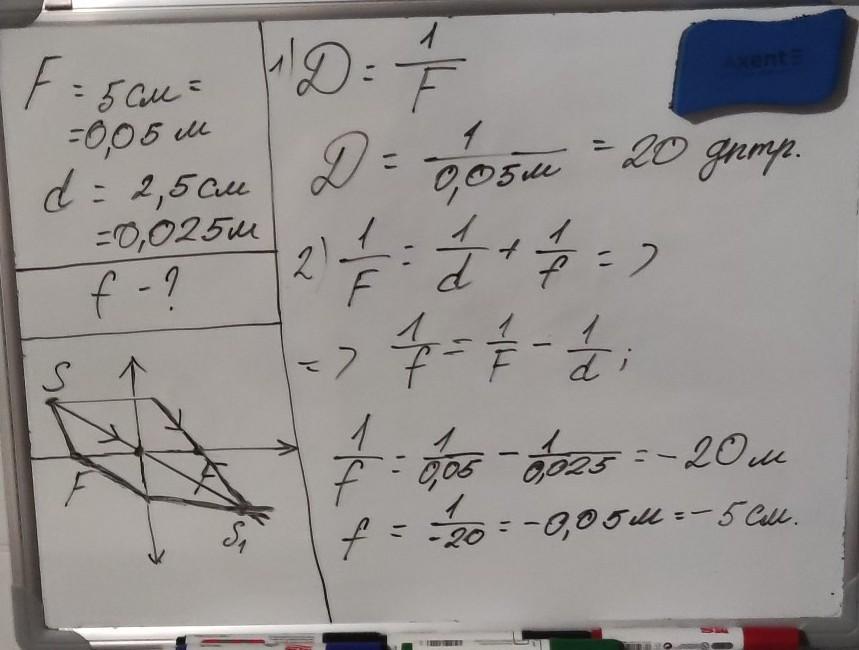 F = 5 см =
= 0,05 м
d = 2,5 см
= 0,025 м
f - ?
S
F
F
S₁
1) D = 1/F
D = 1/0,05 м = 20 дптр.
2) 1/F = 1/d + 1/f =>
=> 1/f = 1/F - 1/d ;
1/f = 1/0,05 - 1/0,025 = -20 м
f = 1/-20 = -0,05 м = -5 см.
Axent